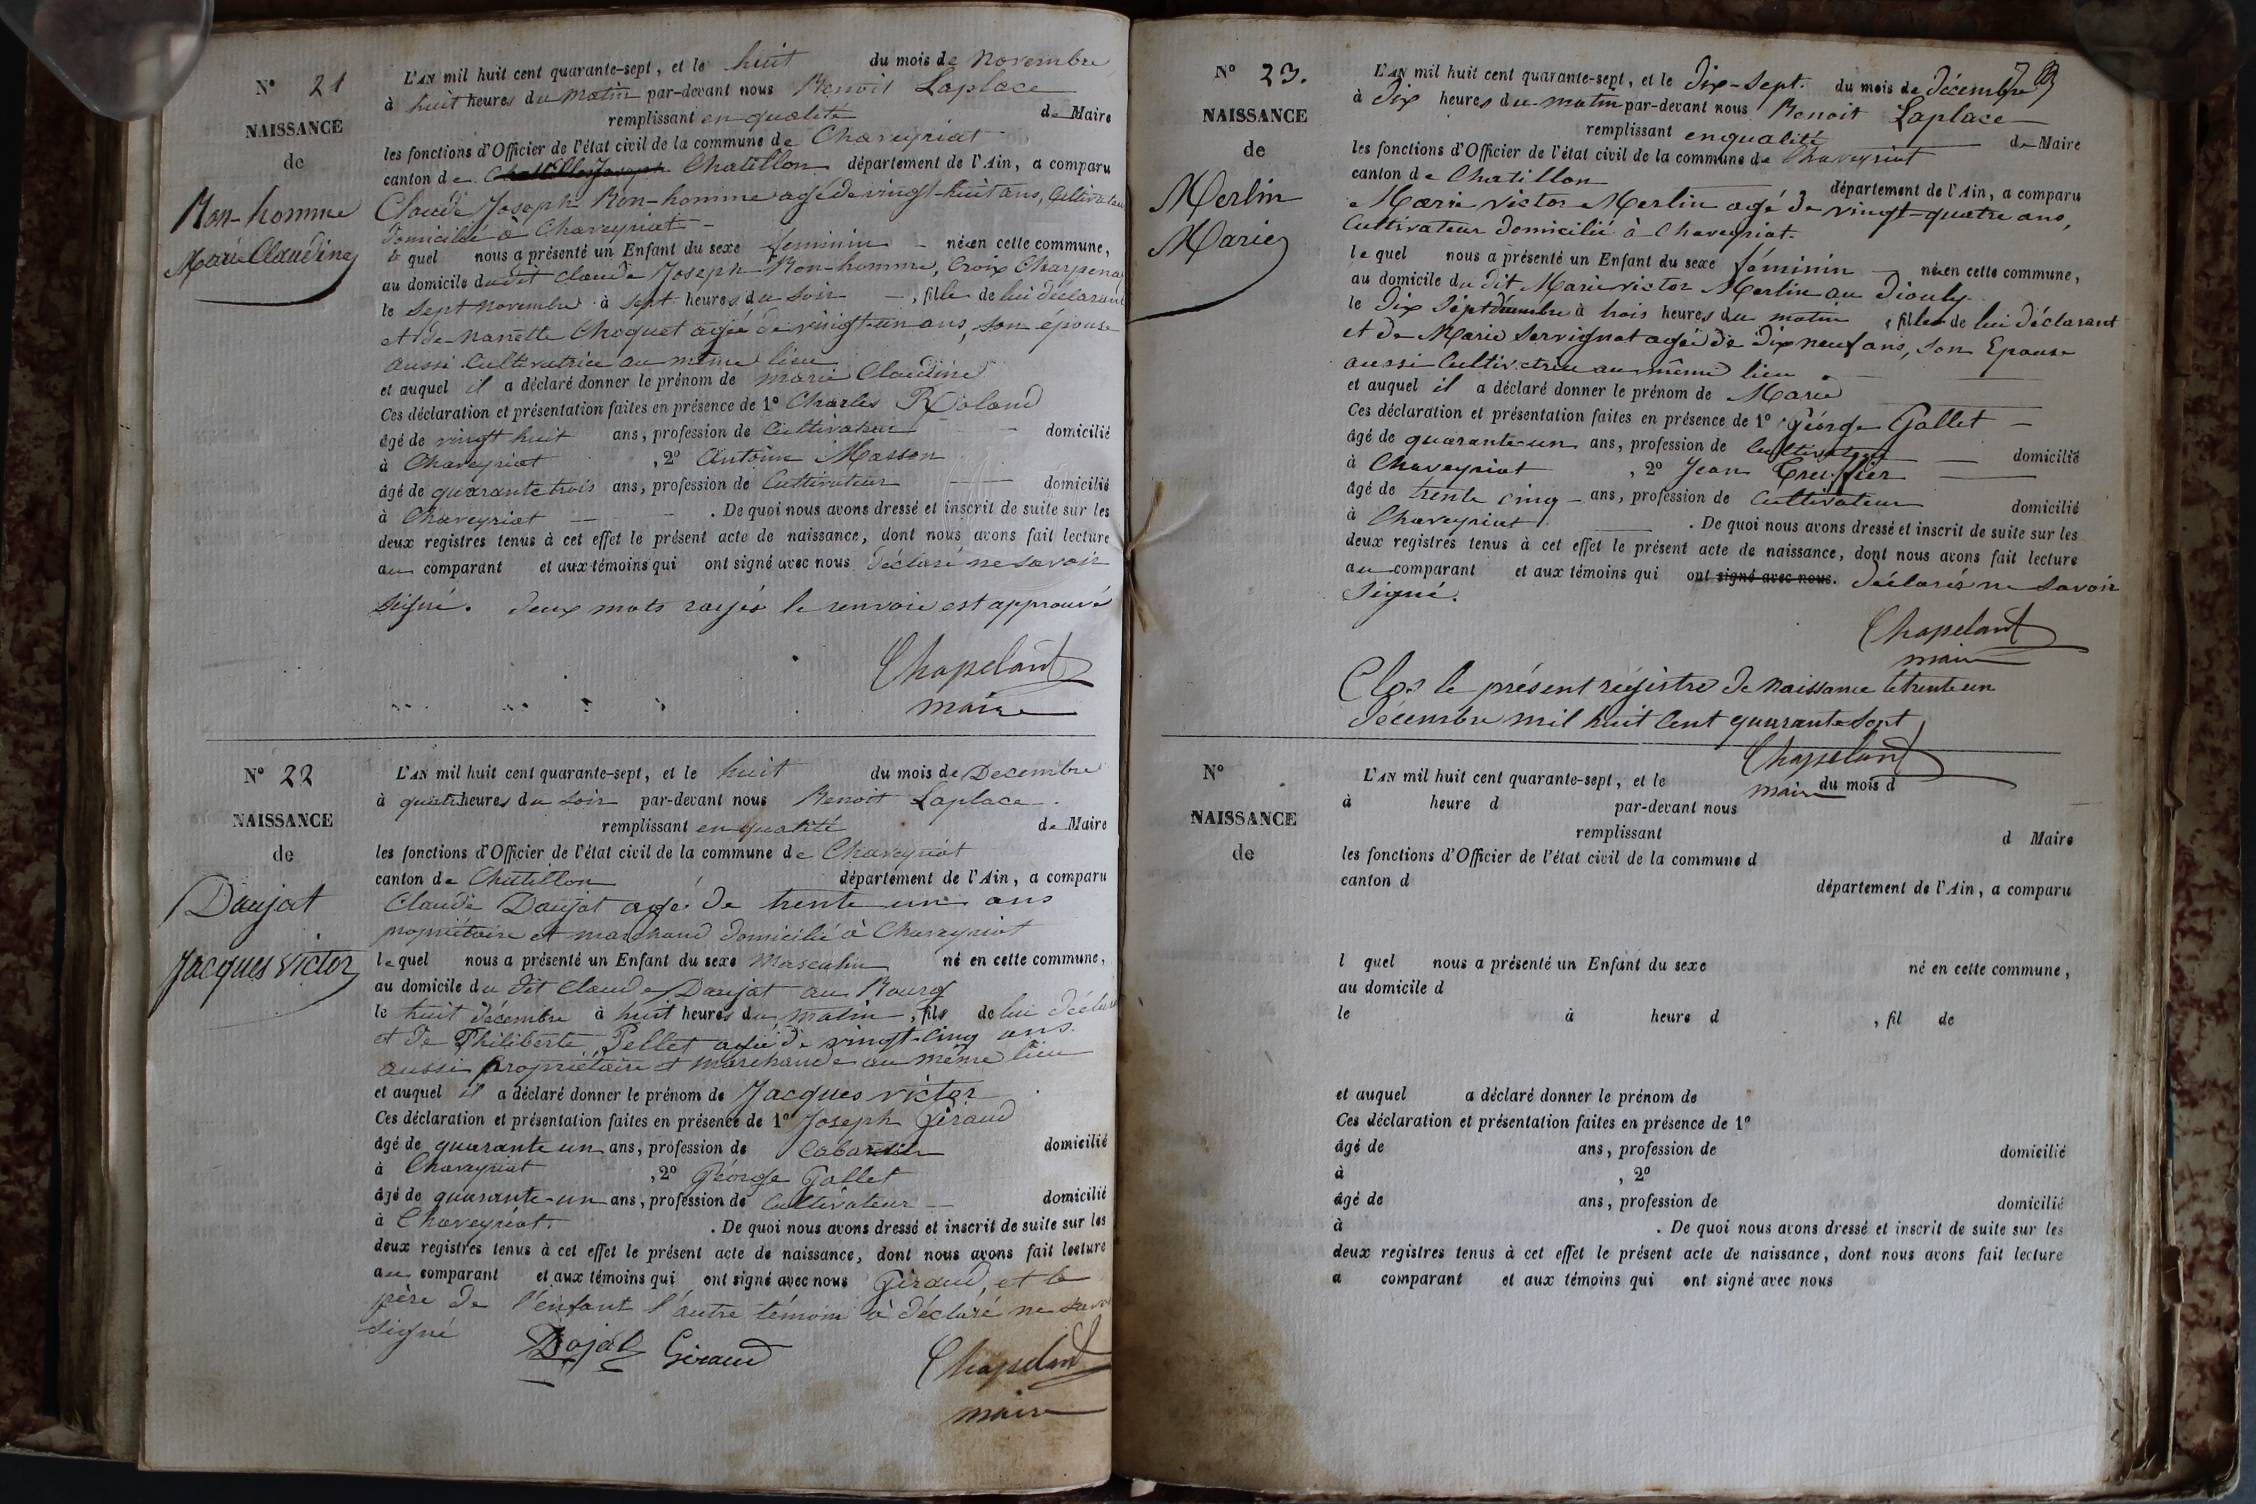 N° 21
NAISSANCE
de
Bon-homme
Marie Claudine
L'AN mil huit cent quarante-sept, et le huit du mois de Novembre
à huit heures du matin par-devant nous Benoit Laplace
remplissant en qualité de Maire
les fonctions d'Officier de l'état civil de la commune de Chaveyriat
canton de Chatillon département de l'Ain, a comparu
Claude Joseph Bon-homme agé de vingt-huit ans, Cultivateur
domicilié à Chaveyriat
le quel nous a présenté un Enfant du sexe feminin né en cette commune,
au domicile du dit Claude Joseph Bon-homme, Croix Charpena
le Sept novembre à sept heures du soir, fille de lui déclarant
et de Nanette Choquet agée de vingt-un ans, son épouse
aussi Cultivatrice au même lieu
et auquel il a déclaré donner le prénom de marie Claudine
Ces déclaration et présentation faites en présence de 1° Charles Roland
âgé de vingt huit ans, profession de Cultivateur domicilié
à Chaveyriat, 2° Antoine Masson
âgé de quarante trois ans, profession de Cultivateur domicilié
à Chaveyriat. De quoi nous avons dressé et inscrit de suite sur les
deux registres tenus à cet effet le présent acte de naissance, dont nous avons fait lecture
au comparant et aux témoins qui ont signé avec nous déclaré ne savoir
Signé. deux mots rayés le renvoie est approuvé
Chapelant
maire
N° 22
NAISSANCE
de
Daujat
Jacques victor
L'AN mil huit cent quarante-sept, et le huit du mois de Decembre
à quatre heures du soir par-devant nous Benoit Laplace
remplissant en qualité de Maire
les fonctions d'Officier de l'état civil de la commune de Chaveyriat
canton de Chatillon département de l'Ain, a comparu
Claude Daujat agé de trente un ans
propriétaire et marchand domicilié à Chaveyriat
le quel nous a présenté un Enfant du sexe Masculin né en cette commune,
au domicile du dit Claude Daujat au Bourg
le huit décembre à huit heures du matin, fils de lui déclarant
et de Philiberte Pellet agée de vingt-cinq ans
aussi propriétaire et marchande au même lieu
et auquel il a déclaré donner le prénom de Jacques victor
Ces déclaration et présentation faites en présence de 1° Joseph Giraud
âgé de quarante un ans, profession de Cabaretier domicilié
à Chaveyriat, 2° Géorge Gallet
âgé de quarante-un ans, profession de Cultivateur domicilié
à Chaveyriat. De quoi nous avons dressé et inscrit de suite sur les
deux registres tenus à cet effet le présent acte de naissance, dont nous avons fait lecture
au comparant et aux témoins qui ont signé avec nous Giraud, et le
père de l'enfant l'autre témoin à déclaré ne savoir
signé
Dojat Giraud
Chapelant
maire
N° 23.
NAISSANCE
de
Merlin
Marie
L'AN mil huit cent quarante-sept, et le dix-sept. du mois de décembre
à dix heures du matin par-devant nous Benoit Laplace
remplissant en qualité de Maire
les fonctions d'Officier de l'état civil de la commune de Chaveyriat
canton de Chatillon département de l'Ain, a comparu
Marie victor Merlin agé de vingt-quatre ans,
Cultivateur domicilié à Chaveyriat.
le quel nous a présenté un Enfant du sexe féminin née en cette commune,
au domicile du dit Marie victor Merlin au Diouly
le dix sept décembre à trois heures du matin, fille de lui déclarant
et de Marie Servignat agée de dix neuf ans, son Epouse
aussi Cultivatrice au même lieu
et auquel il a déclaré donner le prénom de Marie
Ces déclaration et présentation faites en présence de 1° Géorge Gallet
âgé de quarante-un ans, profession de Cultivateur domicilié
à Chaveyriat, 2° Jean Treuffier
âgé de trente cinq ans, profession de Cultivateur domicilié
à Chaveyriat. De quoi nous avons dressé et inscrit de suite sur les
deux registres tenus à cet effet le présent acte de naissance, dont nous avons fait lecture
au comparant et aux témoins qui ont signé avec nous. déclarés ne savoir
Signé.
Chapelant
maire
Clos le présent régistre de Naissance le trente un
décembre mil huit Cent quarante sept
Chapelant
maire
N°
NAISSANCE
de
L'AN mil huit cent quarante-sept, et le du mois d
à heure d par-devant nous
remplissant d Maire
les fonctions d'Officier de l'état civil de la commune d
canton d département de l'Ain, a comparu
l quel nous a présenté un Enfant du sexe né en cette commune,
au domicile d
le à heure d , fil de
et auquel a déclaré donner le prénom de
Ces déclaration et présentation faites en présence de 1°
âgé de ans, profession de domicilié
à , 2°
âgé de ans, profession de domicilié
à . De quoi nous avons dressé et inscrit de suite sur les
deux registres tenus à cet effet le présent acte de naissance, dont nous avons fait lecture
a comparant et aux témoins qui ont signé avec nous